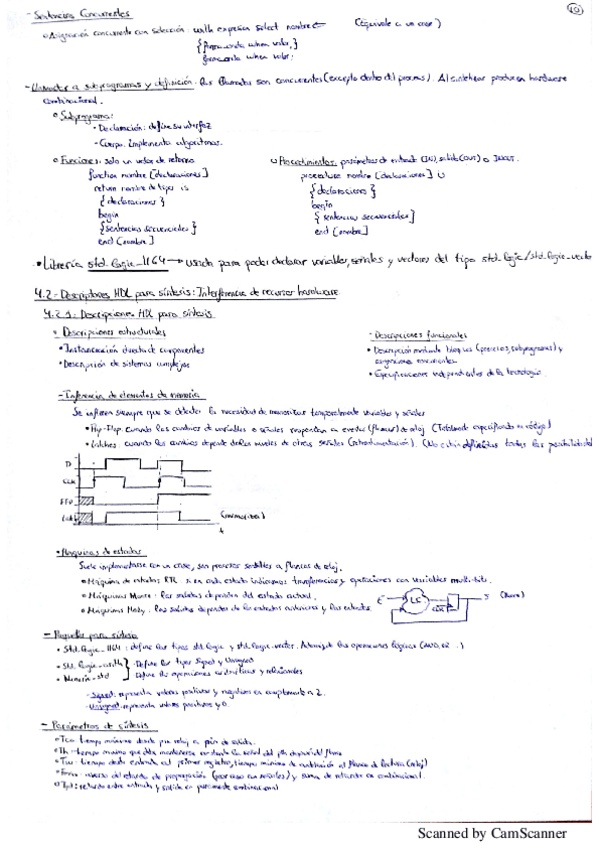 - Sentencias Concurrentes
10
o Asignación concurrente con selección: with expresion select nombre <= (Equivale a un case)
{forma onda when valor,}
forma onda when valor;
- Llamadas a subprogramas y definición: las llamadas son concurrentes (excepto dentro del proceso). Al sintetizar producen hardware
combinacional.
o Subprograma:
- Declaración: define su interfaz
- Cuerpo: Implementa algoritmos.
o Funciones: solo un valor de retorno
function nombre [declaraciones]
return nombre de tipo is
{declaraciones}
begin
{sentencias secuenciales}
end [nombre]
o Procedimientos: parámetros de entrada (IN), salida (OUT) o INOUT.
procedure nombre [declaraciones] is
{declaraciones}
begin
{sentencias secuenciales}
end [nombre]
• Librería std_logic_1164 → usada para poder declarar variables, señales y vectores del tipo std_logic/std_logic_vector
4.2 - Descriptores HDL para síntesis: Interferencia de recursos hardware
4.2.1 - Descripciones HDL para síntesis
o Descripciones estructurales
• Instanciación directa de componentes
• Descripción de sistemas complejos
- Descripciones funcionales
• Descripción mediante bloques (procesos, subprogramas) y
asignaciones concurrentes.
• Especificaciones independientes de la tecnología
- Inferencia de elementos de memoria
Se infieren siempre que se detecta la necesidad de memorizar temporalmente variables y señales
• Flip-Flop: cuando los cambios de variables o señales responden a eventos (flancos) de reloj (Totalmente especificado en código)
• Latches: cuando los cambios depende de los niveles de otras señales (retroalimentación). (No están definidas todas las posibilidades
D
CLK
FFD
Latch
(memoriza)
t
• Máquinas de estados
Suele implementarse con un case, son procesos sensibles a flancos de reloj.
• Máquina de estados RTL: si en cada estado indicamos transferencias y operaciones con variables multi-bits.
• Máquinas Moore: las salidas dependen del estado actual.
• Máquinas Mealy: las salidas dependen de los estados anteriores y las entradas
E
LC
CLK
S (Moore)
- Paquetes para síntesis
• Std_logic_1164: define los tipos std_logic y std_logic_vector. Además de las operaciones lógicas (AND, OR ...)
• Std_logic_arith
• Numeric_std
- Define los tipos Signed y Unsigned
- Define las operaciones aritméticas y relacionales
- Signed: representa valores positivos y negativos en complemento a 2.
- Unsigned: representa valores positivos y 0.
- Parámetros de síntesis
• Tco - tiempo máximo desde pin reloj a pin de salida.
• Th - tiempo máximo que debe mantenerse constante la señal del pin después del flanco
• Tsu - tiempo desde entrada al primer registro, tiempo mínimo de antelación al flanco de lectura (reloj)
• Fmax - inverso del retardo de propagación
• Tpd: retardo entre entrada y salida en puramente combinacional
Scanned by CamScanner